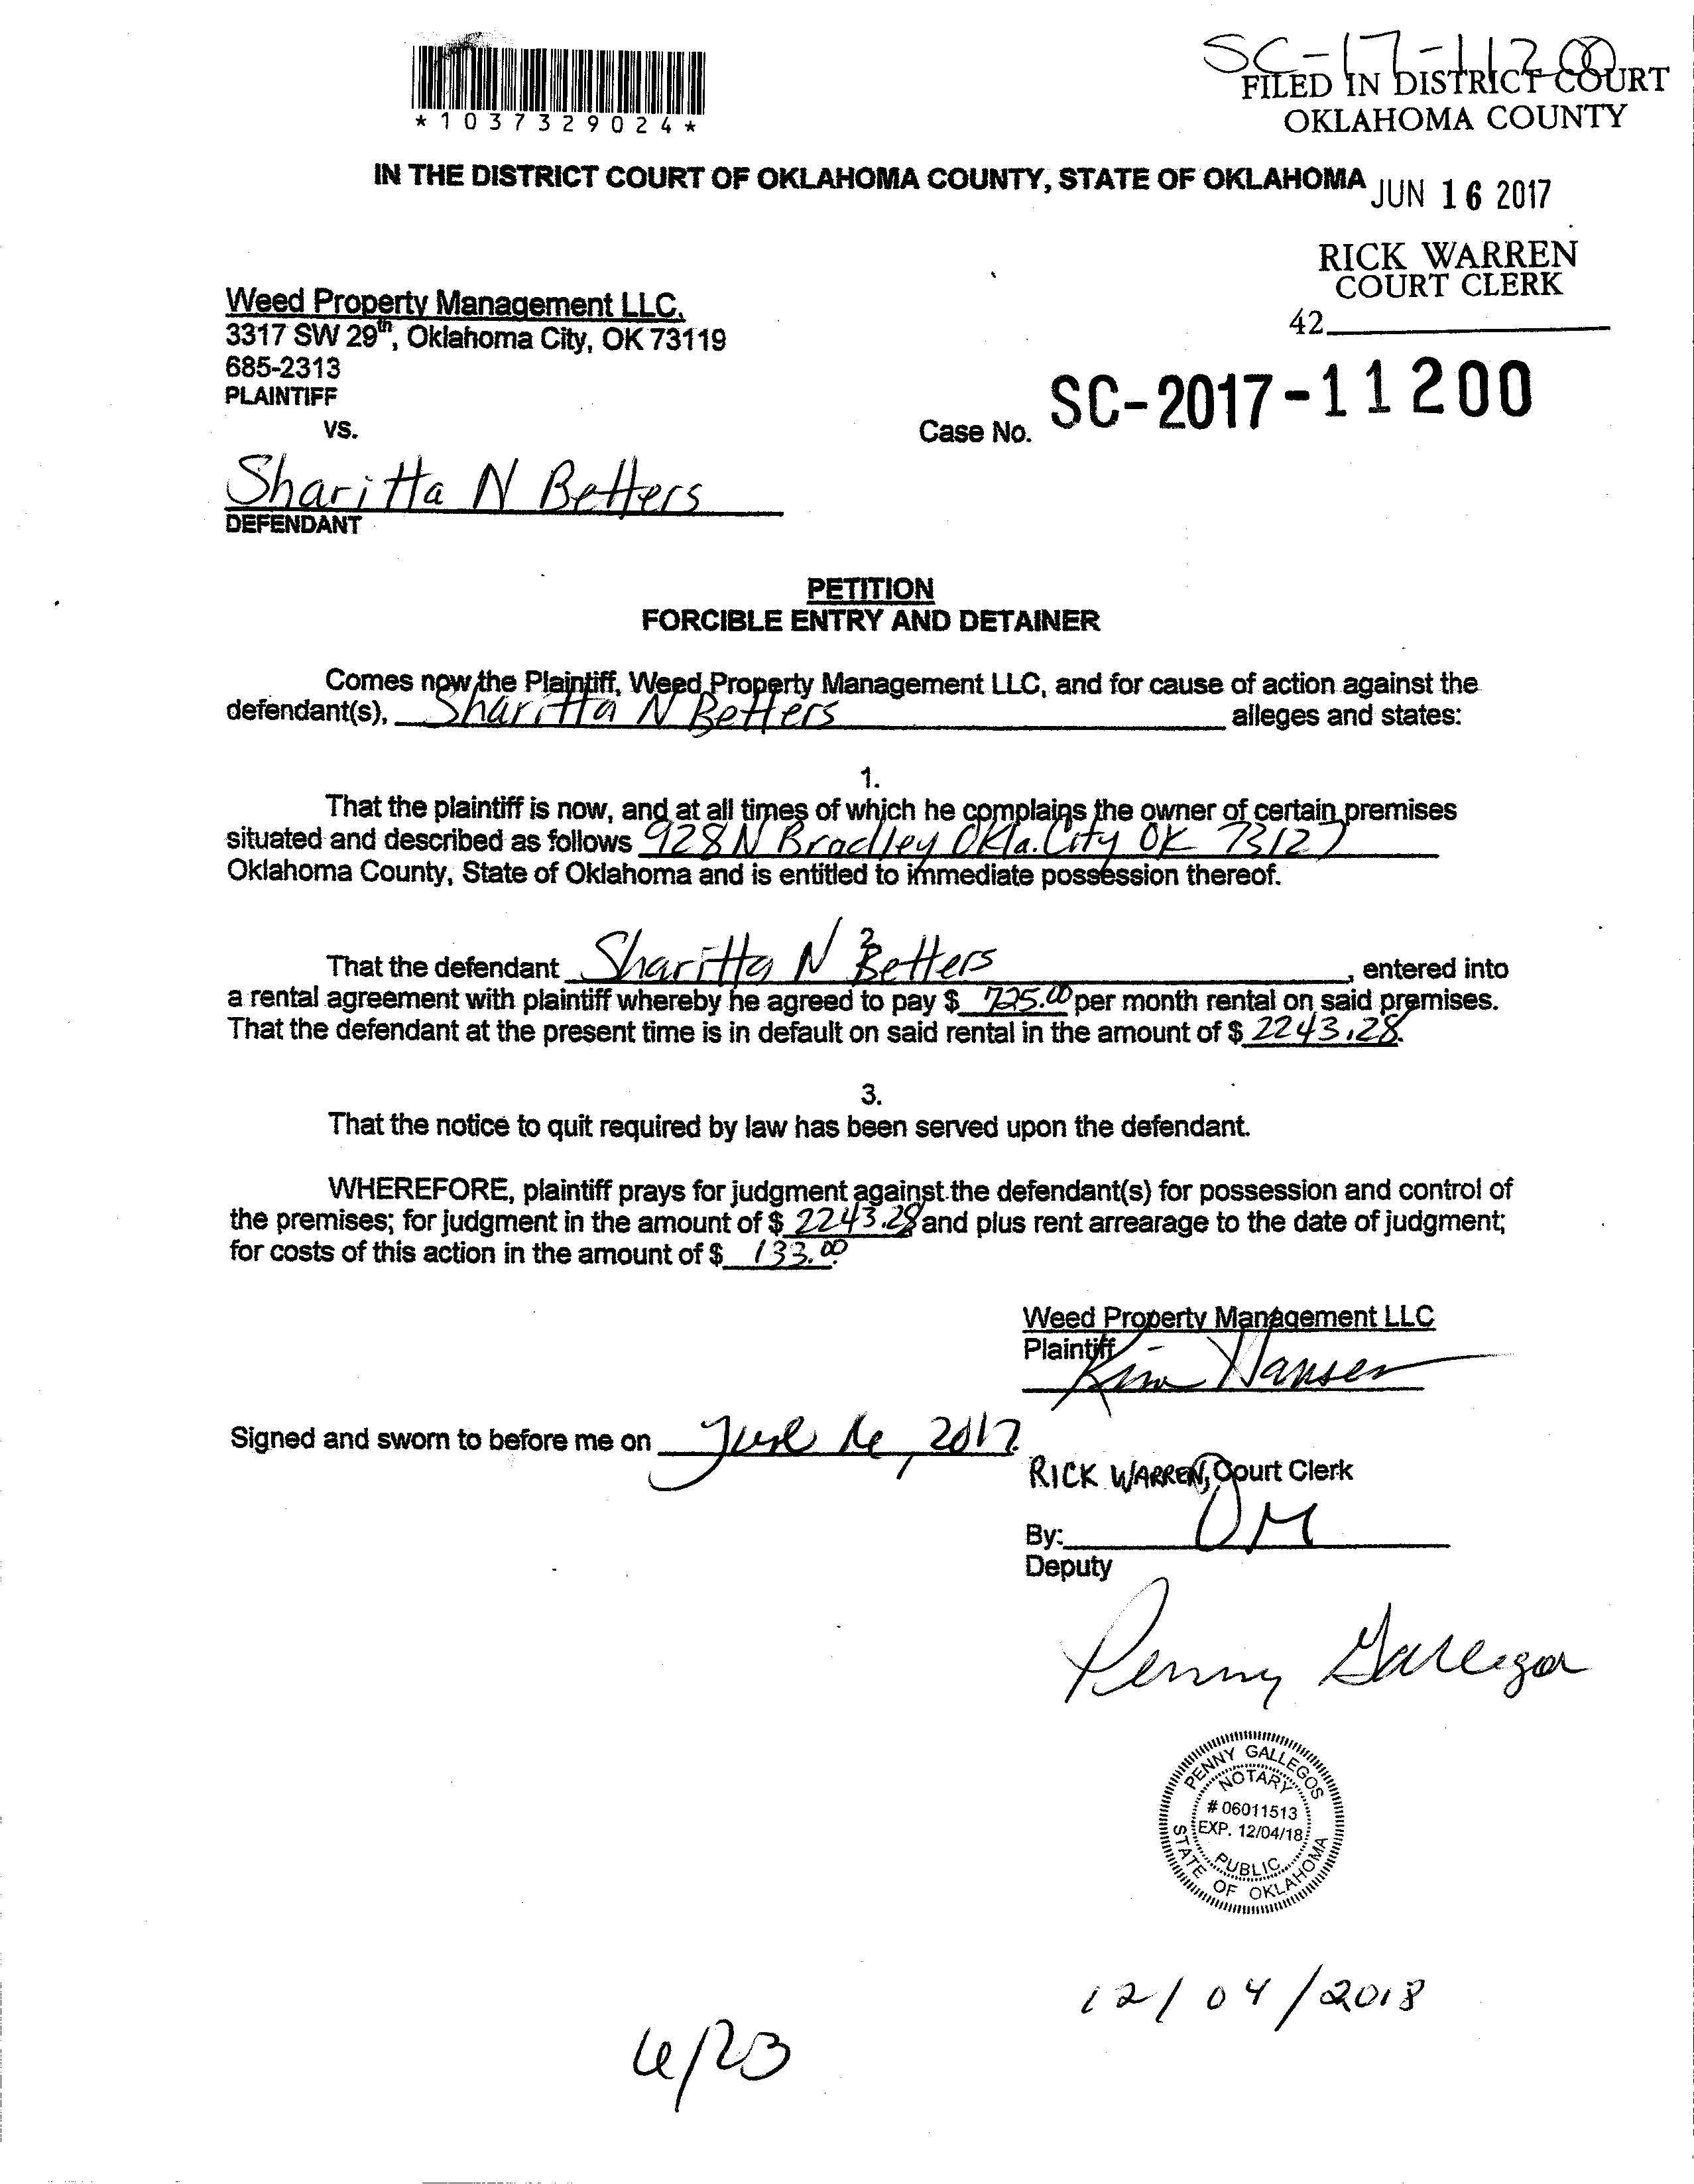 SC-17-11200
FILED IN DISTRICT COURT
OKLAHOMA COUNTY
*1037329024*
IN THE DISTRICT COURT OF OKLAHOMA COUNTY, STATE OF OKLAHOMA
JUN 16 2017
RICK WARREN
COURT CLERK
42
Weed Property Management LLC.
3317 SW 29th, Oklahoma City, OK 73119
685-2313
PLAINTIFF
VS.
Case No. SC-2017-11200
Sharitta N Betters
DEFENDANT
PETITION
FORCIBLE ENTRY AND DETAINER
Comes now the Plaintiff, Weed Property Management LLC, and for cause of action against the
defendant(s), Sharitta N Betters alleges and states:
1.
That the plaintiff is now, and at all times of which he complains the owner of certain premises
situated and described as follows 928 N Bradley Okla. City OK 73127
Oklahoma County, State of Oklahoma and is entitled to immediate possession thereof.
2
That the defendant Sharitta N Betters, entered into
a rental agreement with plaintiff whereby he agreed to pay $ 725.00 per month rental on said premises.
That the defendant at the present time is in default on said rental in the amount of $ 2243.28.
3.
That the notice to quit required by law has been served upon the defendant.
WHEREFORE, plaintiff prays for judgment against the defendant(s) for possession and control of
the premises; for judgment in the amount of $ 2243.28 and plus rent arrearage to the date of judgment;
for costs of this action in the amount of $ 133.00.
Weed Property Management LLC
Plaintiff
Kim Hansen
Signed and sworn to before me on June 16, 2017.
RICK WARREN, Court Clerk
By: DM
Deputy
Penny Gallegos
PENNY GALLEGOS
NOTARY
# 06011513
EXP. 12/04/18
PUBLIC
STATE OF OKLAHOMA
12/04/2018
6/23